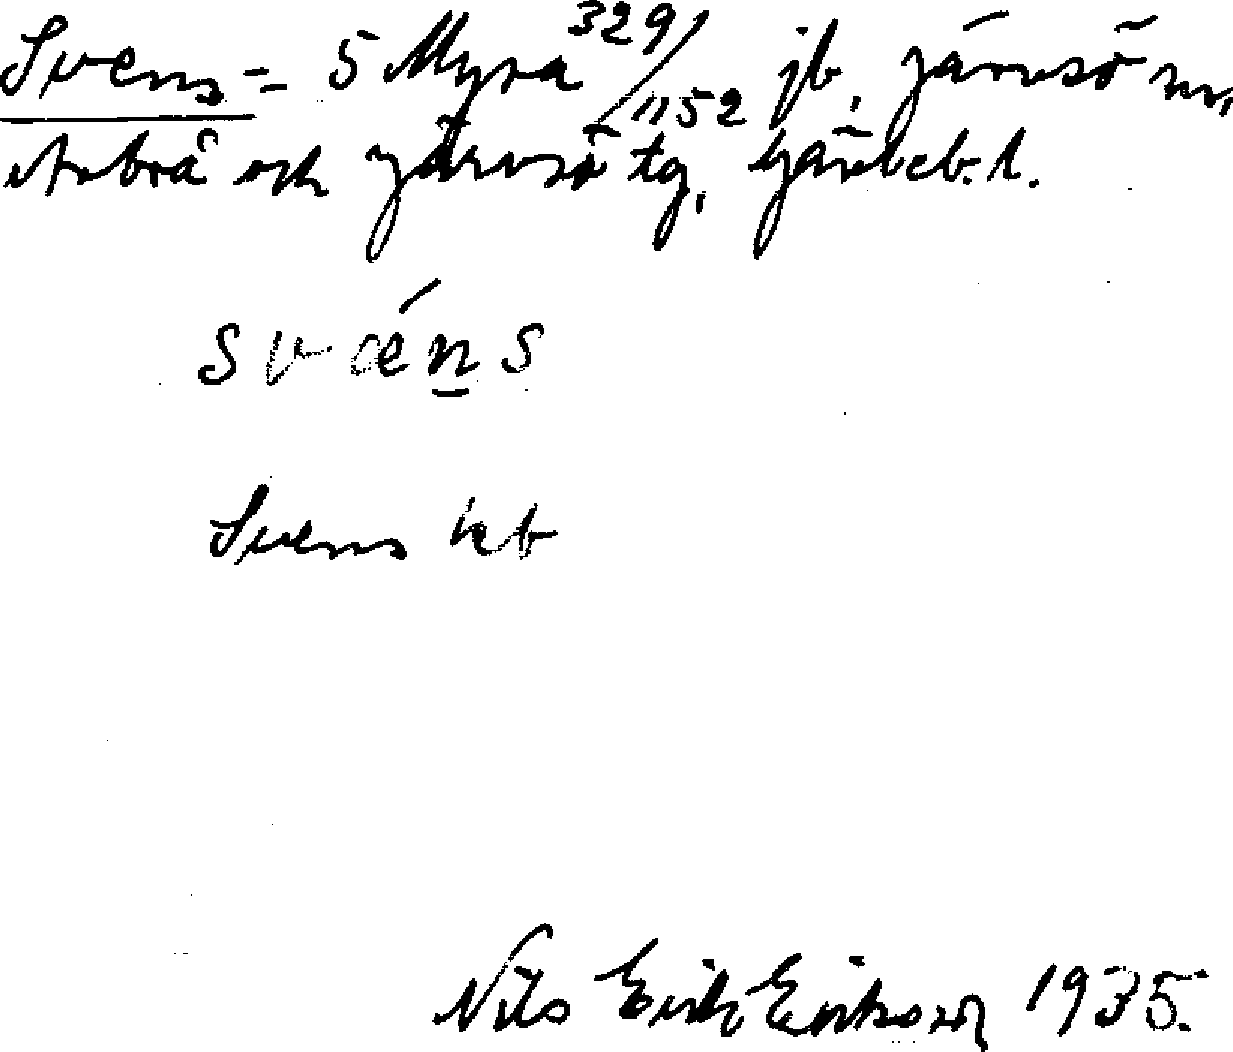 Svens = 5 Myra 329/1152 jb, Järvsö sn,
Arbrå och Järvsö tg, Gävleb. l.
svǽn̲s
Svens kb
Nils Erik Erikson 1935.